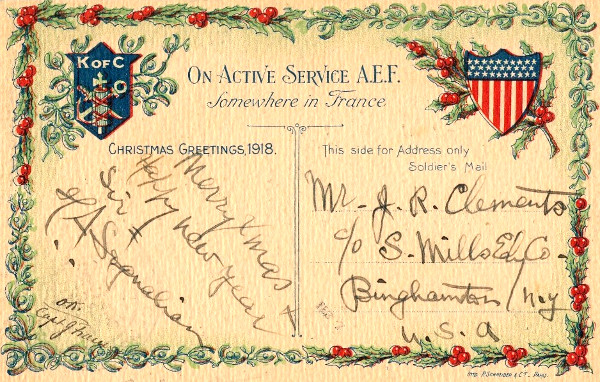 K of C
ON ACTIVE SERVICE A.E.F.
Somewhere in France
CHRISTMAS GREETINGS, 1918.
Merry Xmas +
Happy new year
Sir +
This side for Address only
Soldier's Mail
Mr. J. R. Clements
c/o S. Mills Ed. Co.
Binghamton / N.Y
U.S.A
IMP. P. SCHNEIDER & CT. PARIS.